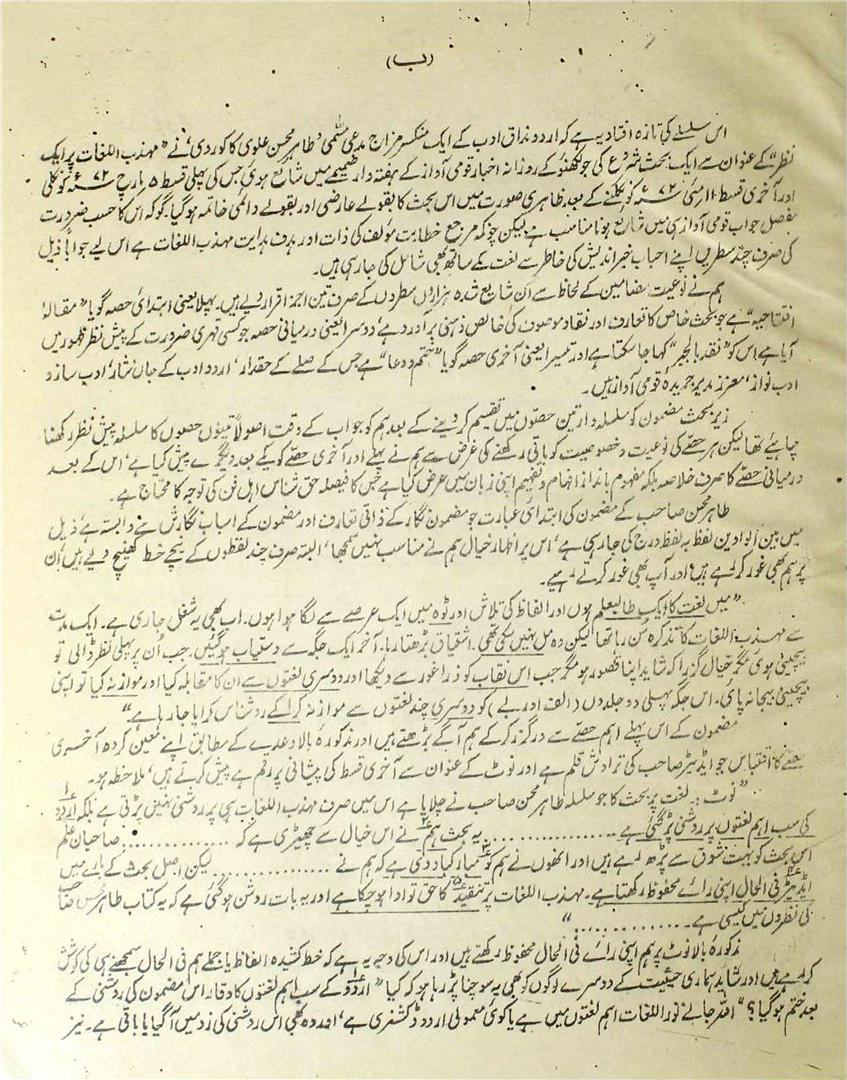 (ب)
اس سلسلے کی تازہ افتاد یہ ہے کہ اردو مذاق ادب کے ایک منکسر مزاج مدعی مسمّٰی ’طاہر محسن علوی کاکوروی‘ نے ”مہذب اللغات پر ایک
نظر“ کے عنوان سے ایک بحث شروع کی جو لکھنؤ کے روزانہ اخبار قومی آواز کے ہفتہ وار ضمیمے میں شایع ہوئی جس کی پہلی قسط ۵ مارچ ۷۲ء کو نکلی
اور آخری قسط ۱۱ مئی ۷۲ء کو نکلنے کے بعد ظاہری صورت میں اس بحث کا بقولے عارضی اور بقولے دائمی خاتمہ ہو گیا۔ گو کہ اس کا حسب ضرورت
مفصل جواب قومی آواز ہی میں شایع ہونا مناسب ہے لیکن چونکہ مرجع خطابت مؤلف کی ذات اور ہدف ہدایت مہذب اللغات ہے اس لیے جواباً ذیل
کی صرف چند سطریں اپنے احباب خیر اندیش کی خاطر سے لغت کے ساتھ بھی شامل کی جا رہی ہیں۔
ہم نے نوعیت مضامین کے لحاظ سے ان شایع شدہ ہزاروں سطروں کے صرف تین اجزا قرار دیے ہیں۔ پہلا یعنی ابتدائی حصہ گویا ”مقالۂ
افتتاحیہ“ ہے جو بحث خاص کا تعارف اور نقاد موصوف کی خالص ذہنی پرآورد ہے، دوسرا یعنی درمیانی حصہ جو کسی نہری ضرورت کے پیش نظر ظہور میں
آیا ہے اس کو ”نقد بالجبر“ کہا جا سکتا ہے اور تیسرا یعنی آخری حصہ گویا ”ختم و دعا“ ہے جس کے صلے کے حقدار، اردو ادب کے جاں نثار، ادب ساز و
ادب نواز، معزز مدیر جریدۂ قومی آواز ہیں۔
زیر بحث مضمون کو سلسلہ وار تین حصوں میں تقسیم کر دینے کے بعد ہم کو جواب کے وقت اصولاً تینوں حصوں کا سلسلہ پیش نظر رکھنا
چاہئے تھا لیکن ہر حصّے کی نوعیت و خصوصیت کو باقی رکھنے کی غرض سے ہم نے پہلے اور آخری حصّے کو یکے بعد دیگرے پیش کیا ہے، اس کے بعد
درمیانی حصّے کا صرف خلاصہ بلکہ مفہوم بانداز افہام و تفہیم اپنی زبان میں عرض کیا ہے جس کا فیصلہ حق شناس اہل فن کی توجہ کا محتاج ہے۔
طاہر محسن صاحب کے مضمون کی ابتدائی عبارت جو مضمون نگار کے ذاتی تعارف اور مضمون کے اسباب نگارش سے وابستہ ہے، ذیل
میں بین الواوین لفظ بہ لفظ درج کی جا رہی ہے، اس پر اظہار خیال ہم نے مناسب نہیں سمجھا، البتہ صرف چند لفظوں کے نیچے خط کھینچ دیے ہیں، ان
پر ہم بھی غور کر رہے ہیں اور آپ بھی غور کرتے رہیے۔
”میں لغت کا ایک طالبعلم ہوں اور الفاظ کی تلاش اور ٹوہ میں ایک عرصے سے لگا ہوا ہوں۔ اب بھی یہ شغل جاری ہے۔ ایک مدت
سے مہذب اللغات کا تذکرہ سن رہا تھا لیکن وہ مل نہیں سکی تھی، اشتیاق بڑھتا رہا۔ آخر ایک جگہ سے دستیاب ہو گئیں۔ جب اُن پر پہلی نظر ڈالی تو
بیچینی ہوئی مگر خیال گزرا کہ شاید اپنا قصور ہو مگر جب اس نقاب کو ذرا غور سے دیکھا اور دوسری لغتوں سے ان کا مقابلہ کیا اور موازنہ کیا تو اپنی
بیچینی بیجا نہ پائی۔ اس جگہ پہلی دو جلدوں (الف اور ب) کو دوسری چند لغتوں سے موازنہ کرا کے روشناس کرایا جا رہا ہے۔“
مضمون کے اس پہلے اہم حصّے سے درگزر کر کے ہم آگے بڑھتے ہیں اور مذکورہ بالا وعدے کے مطابق اپنے معین کردہ آخری
حصّے کا اقتباس جو ایڈیٹر صاحب کی تراوش قلم ہے اور نوٹ کے عنوان سے آخری قسط کی پیشانی پر رقم ہے پیش کرتے ہیں، ملاحظہ ہو۔
”نوٹ :۔ لغت پر بحث کا جو سلسلہ طاہر محسن صاحب نے چلایا ہے اس میں صرف مہذب اللغات ہی پر روشنی نہیں پڑتی ہے بلکہ اردو
کی سب اہم لغتوں پر روشنی پڑ گئی ہے ............... یہ بحث ہم نے اس خیال سے چھیڑی ہے کہ ............... صاحبان علم
اس بحث کو بہت شوق سے پڑھ رہے ہیں اور انھوں نے ہم کو مبارکباد دی ہے کہ ہم نے ............... لیکن اصل بحث کے بارے میں
ایڈیٹر فی الحال اپنی رائے محفوظ رکھتا ہے۔ مہذب اللغات پر تنقید کا حق تو ادا ہو چکا ہے اور یہ بات روشن ہو گئی ہے کہ یہ کتاب طاہر محسن صاحب
کی نظروں میں کیسی ہے ...............“
مذکورہ بالا نوٹ پر ہم اپنی رائے فی الحال محفوظ رکھتے ہیں اور اس کی وجہ یہ ہے کہ خط کشیدہ الفاظ یا جملے ہم فی الحال سمجھنے ہی کی کوشش
کر رہے ہیں اور شاید ہماری حیثیت کے دوسرے لوگوں کو بھی یہ سوچنا پڑ رہا ہو کہ کیا ”اردو کے سب اہم لغتوں کا وقار اس مضمون کی روشنی کے
بعد ختم ہو گیا؟“ اللہ جانے نور اللغات اہم لغتوں میں ہے یا کوئی معمولی اردو ڈکشنری ہے، اور وہ بھی اس روشنی کی زد میں آ گیا یا باقی ہے۔ نیز